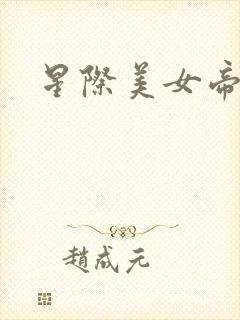 星際美女帝
趙成元